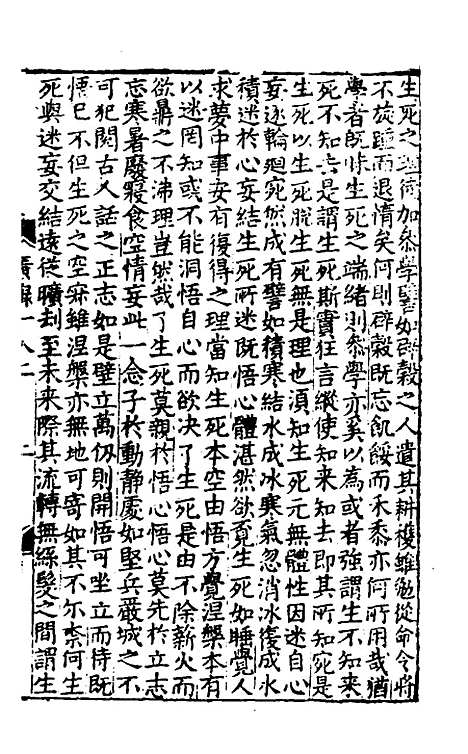 生死之理何加叅學譬如辟穀之人遣其耕穫雖勉從命令將
不旋踵而退惰矣何則辟穀既忘飢餒而禾黍亦何所用哉猶
學者既昧生死之端緒則叅學亦奚以為或者強謂生不知來
死不知去是謂生死斯實狂言縱使知來知去即其所知宛是
生死以生死脫生死無是理也湏知生死元無體性因迷自心
妄逐輪迴宛然成有譬如積寒結水成氷寒氣忽消氷復成水
積迷於心妄結生死所迷既悟心體湛然欲覔生死如睡覺人
求夢中事安有復得之理當知生死本空由悟方覺涅槃本有
以迷罔知或不能洞悟自心而欲决了生死是由不除薪火而
欲鼎之不沸理豈然哉了生死莫親於悟心悟心莫先於立志
忘寒暑廢寢食空情妄此一念子於動靜處如堅兵嚴城之不
可犯閱古人話之正志如是壁立萬仞則開悟可坐立而待既
悟已不但生死之空寂雖涅槃亦無地可寄如其不尓柰何生
死與迷妄交結遠從曠刧至未來際其流轉無絲髮之間謂生
廣錄一八二
二